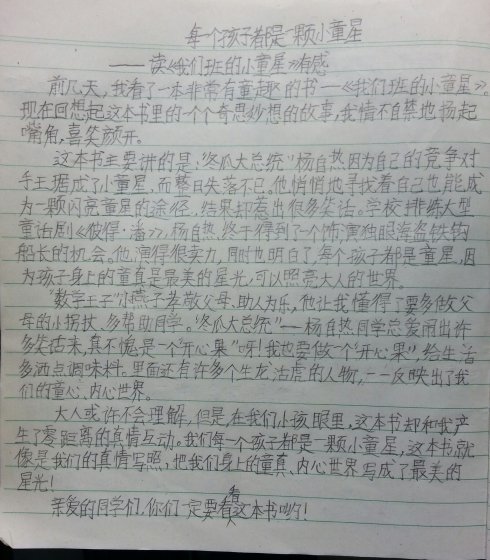 每一个孩子都是一颗小童星
——读《我们班的小童星》有感
前几天，我看了一本非常有童趣的书——《我们班的小童星》。
现在回想起这本书里的一个个奇思妙想的故事，我情不自禁地扬起
嘴角，喜笑颜开。
这本书主要讲的是，“冬瓜大总统”杨自热因为自己的竞争对
手王琚成了小童星，而整日失落不已。他悄悄地寻找着自己也能成
为一颗闪亮童星的途径，结果却惹出很多笑话。学校排练大型
童话剧《彼得·潘》，杨自热终于得到了一个饰演独眼海盗铁钩
船长的机会。他演得很卖力，同时也明白了，每个孩子都是童星，因
为孩子身上的童真是最美的星光，可以照亮大人的世界。
“数学王子”小燕子孝敬父母、助人为乐，他让我懂得了要多做父
母的小拐杖，多帮助同学。“冬瓜大总统”——杨自热同学总爱闹出许
多笑话来，真不愧是一个“开心果”呀！我也要做一个“开心果”，给生活
多洒点调味料。里面还有许多个生龙活虎的人物，一一反映出了我
们的童心、内心世界。
大人或许不会理解，但是在我们小孩眼里，这本书却和我产
生了零距离的真情互动。我们每一个孩子都是一颗小童星，这本书就
像是我们的真情写照，把我们身上的童真、内心世界写成了最美的
星光！
亲爱的同学们，你们一定要看这本书哟！